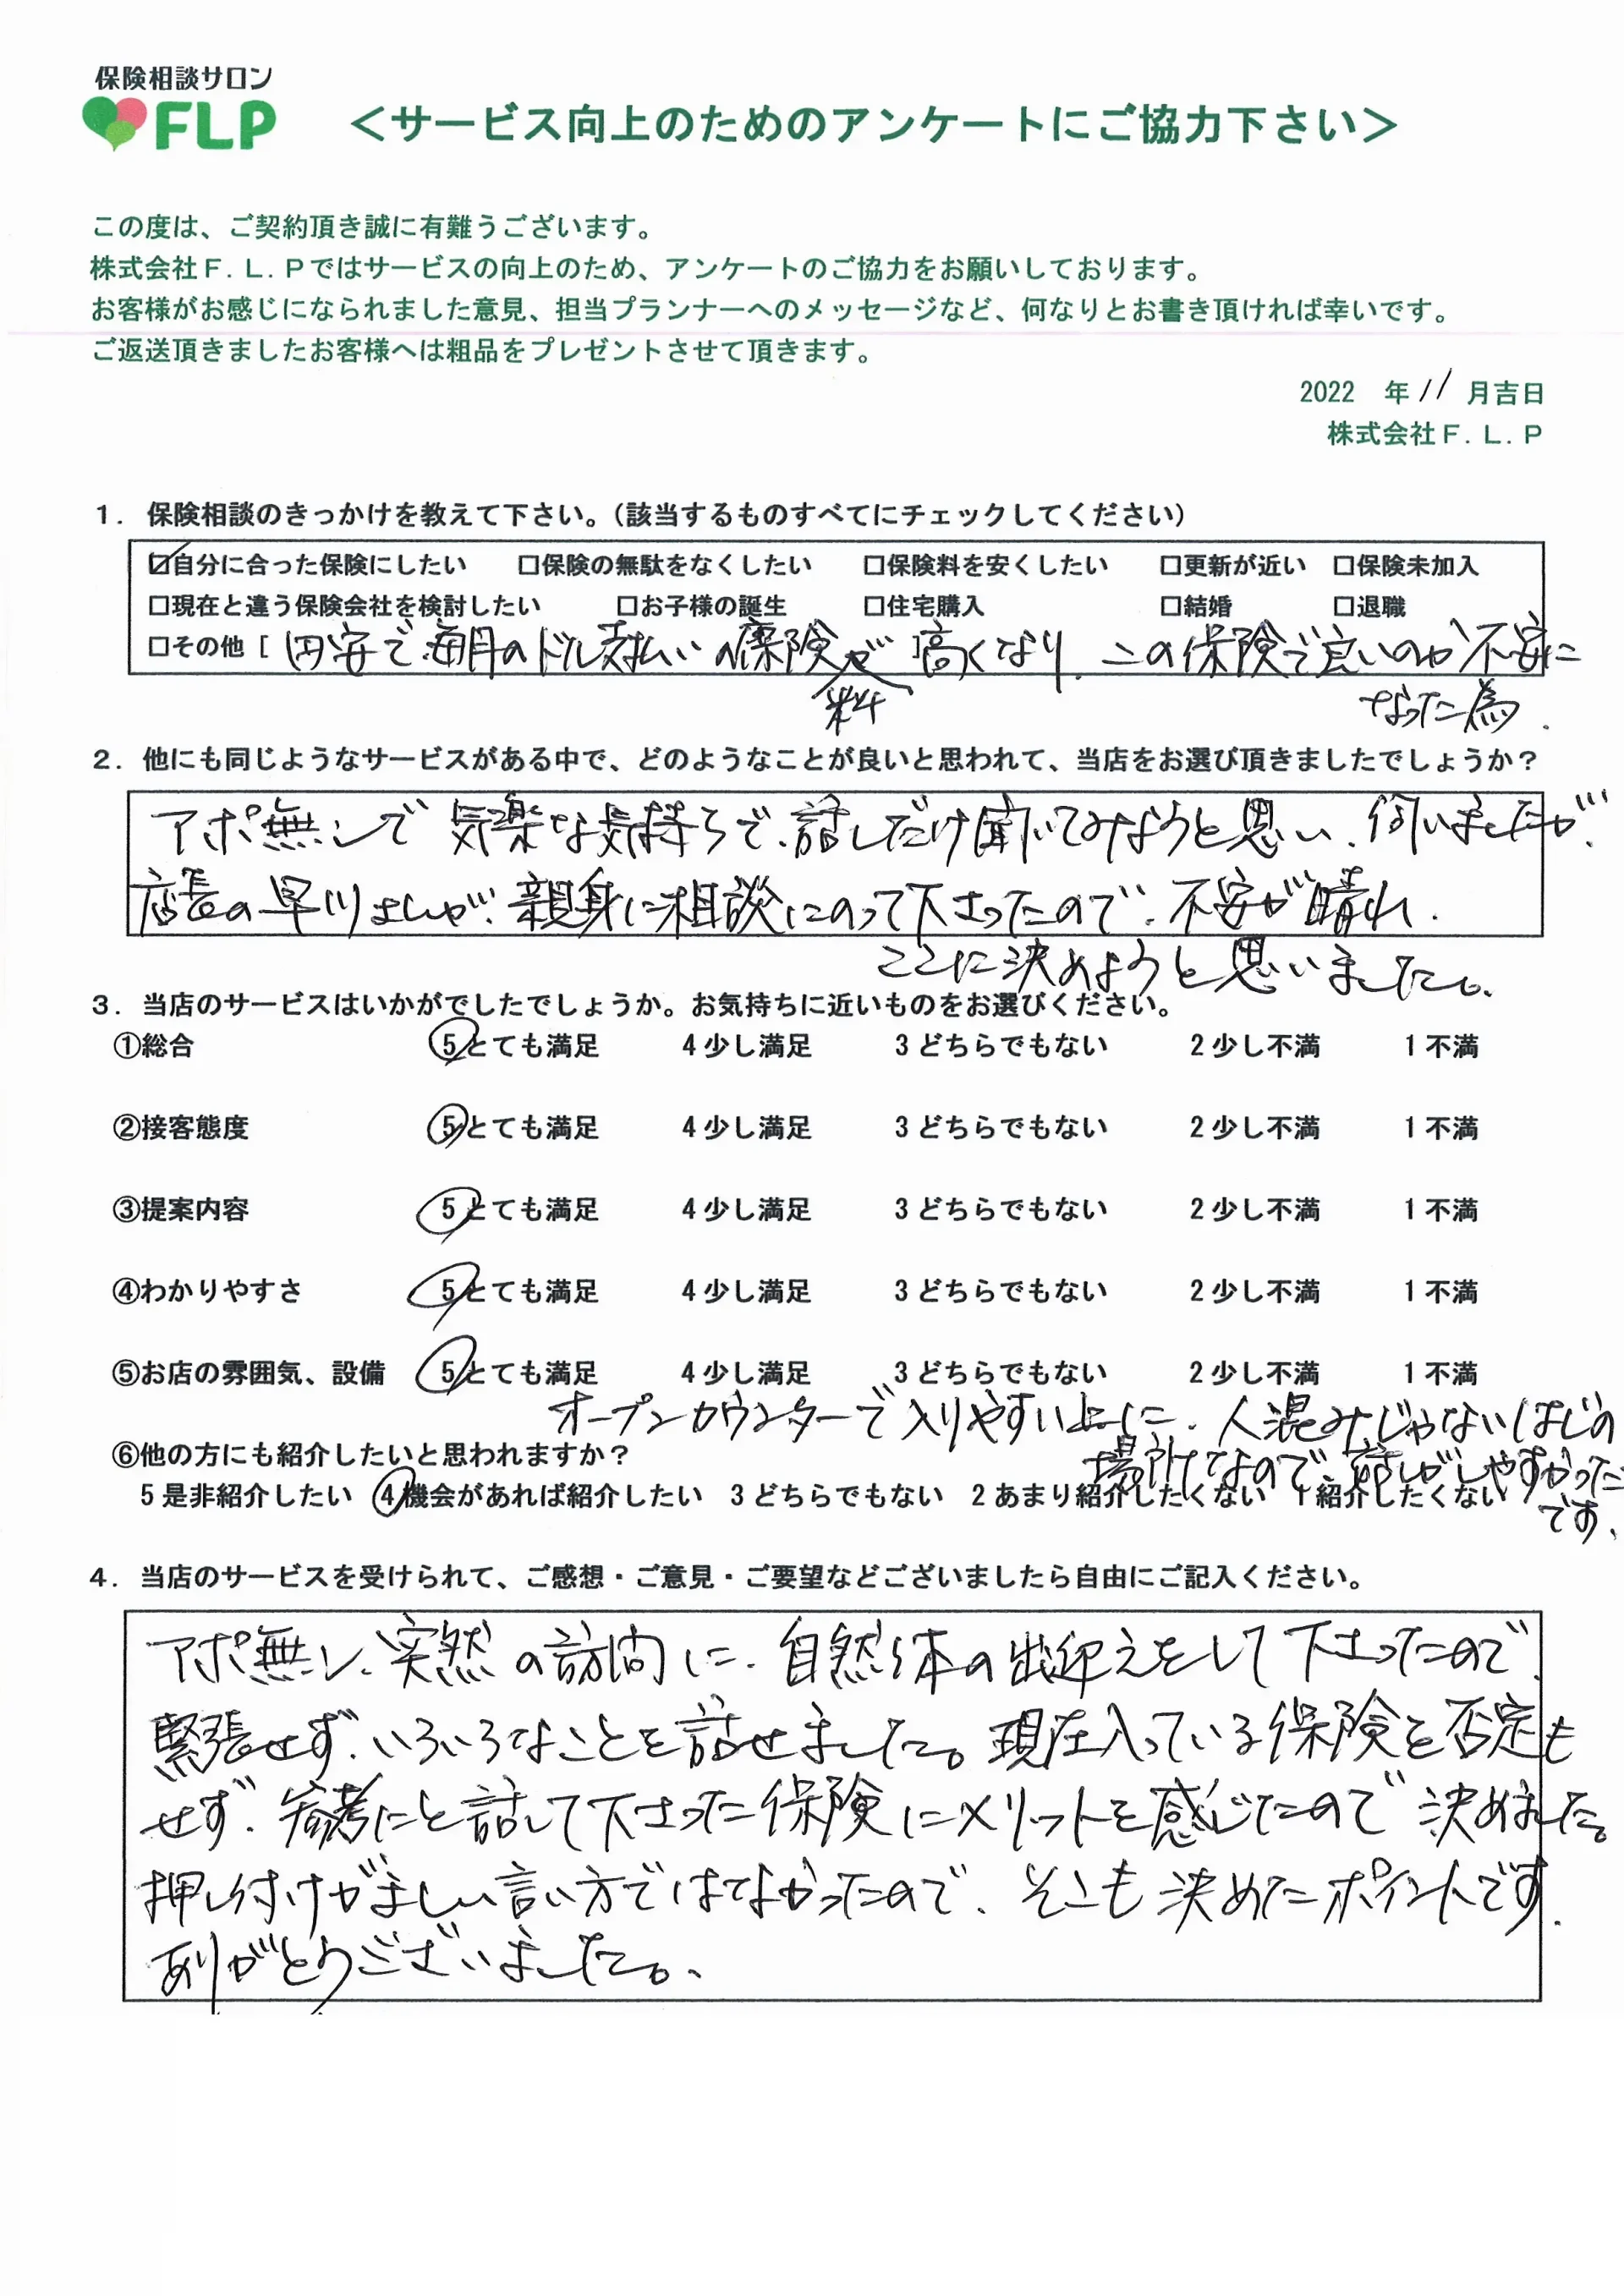 保険相談サロン
FLP
＜サービス向上のためのアンケートにご協力下さい＞
この度は、ご契約頂き誠に有難うございます。
株式会社Ｆ．Ｌ．Ｐではサービスの向上のため、アンケートのご協力をお願いしております。
お客様がお感じになられました意見、担当プランナーへのメッセージなど、何なりとお書き頂ければ幸いです。
ご返送頂きましたお客様へは粗品をプレゼントさせて頂きます。
2022 年 11 月吉日
株式会社Ｆ．Ｌ．Ｐ
１．保険相談のきっかけを教えて下さい。（該当するものすべてにチェックしてください）
☑自分に合った保険にしたい □保険の無駄をなくしたい □保険料を安くしたい □更新が近い □保険未加入
□現在と違う保険会社を検討したい □お子様の誕生 □住宅購入 □結婚 □退職
□その他［ 円安で、毎月のドル支払いの保険料が高くなり、この保険で良いのか不安に
なった為．
２．他にも同じようなサービスがある中で、どのようなことが良いと思われて、当店をお選び頂きましたでしょうか？
アポ無しで気楽な気持ちで、話しだけ聞いてみようと思い、伺いましたが、
店長の早川さんが、親身に相談にのって下さったので、不安が晴れ、
ここに決めようと思いました。
３．当店のサービスはいかがでしたでしょうか。お気持ちに近いものをお選びください。
①総合 ５とても満足 ４少し満足 ３どちらでもない ２少し不満 １不満
②接客態度 ５とても満足 ４少し満足 ３どちらでもない ２少し不満 １不満
③提案内容 ５とても満足 ４少し満足 ３どちらでもない ２少し不満 １不満
④わかりやすさ ５とても満足 ４少し満足 ３どちらでもない ２少し不満 １不満
⑤お店の雰囲気、設備 ５とても満足 ４少し満足 ３どちらでもない ２少し不満 １不満
オープンカウンターで入りやすい上に、人混みじゃないはじの
場所なので、話しがしやすかった
です．
⑥他の方にも紹介したいと思われますか？
５是非紹介したい ４機会があれば紹介したい ３どちらでもない ２あまり紹介したくない １紹介したくない
４．当店のサービスを受けられて、ご感想・ご意見・ご要望などございましたら自由にご記入ください。
アポ無し、突然の訪問に、自然体の出迎えをして下さったので、
緊張せず、いろいろなことを話せました。現在入っている保険を否定も
せず、参考にと話して下さった保険にメリットを感じたので決めました。
押し付けがましい言い方ではなかったので、そこも決めたポイントです．
ありがとうございました。